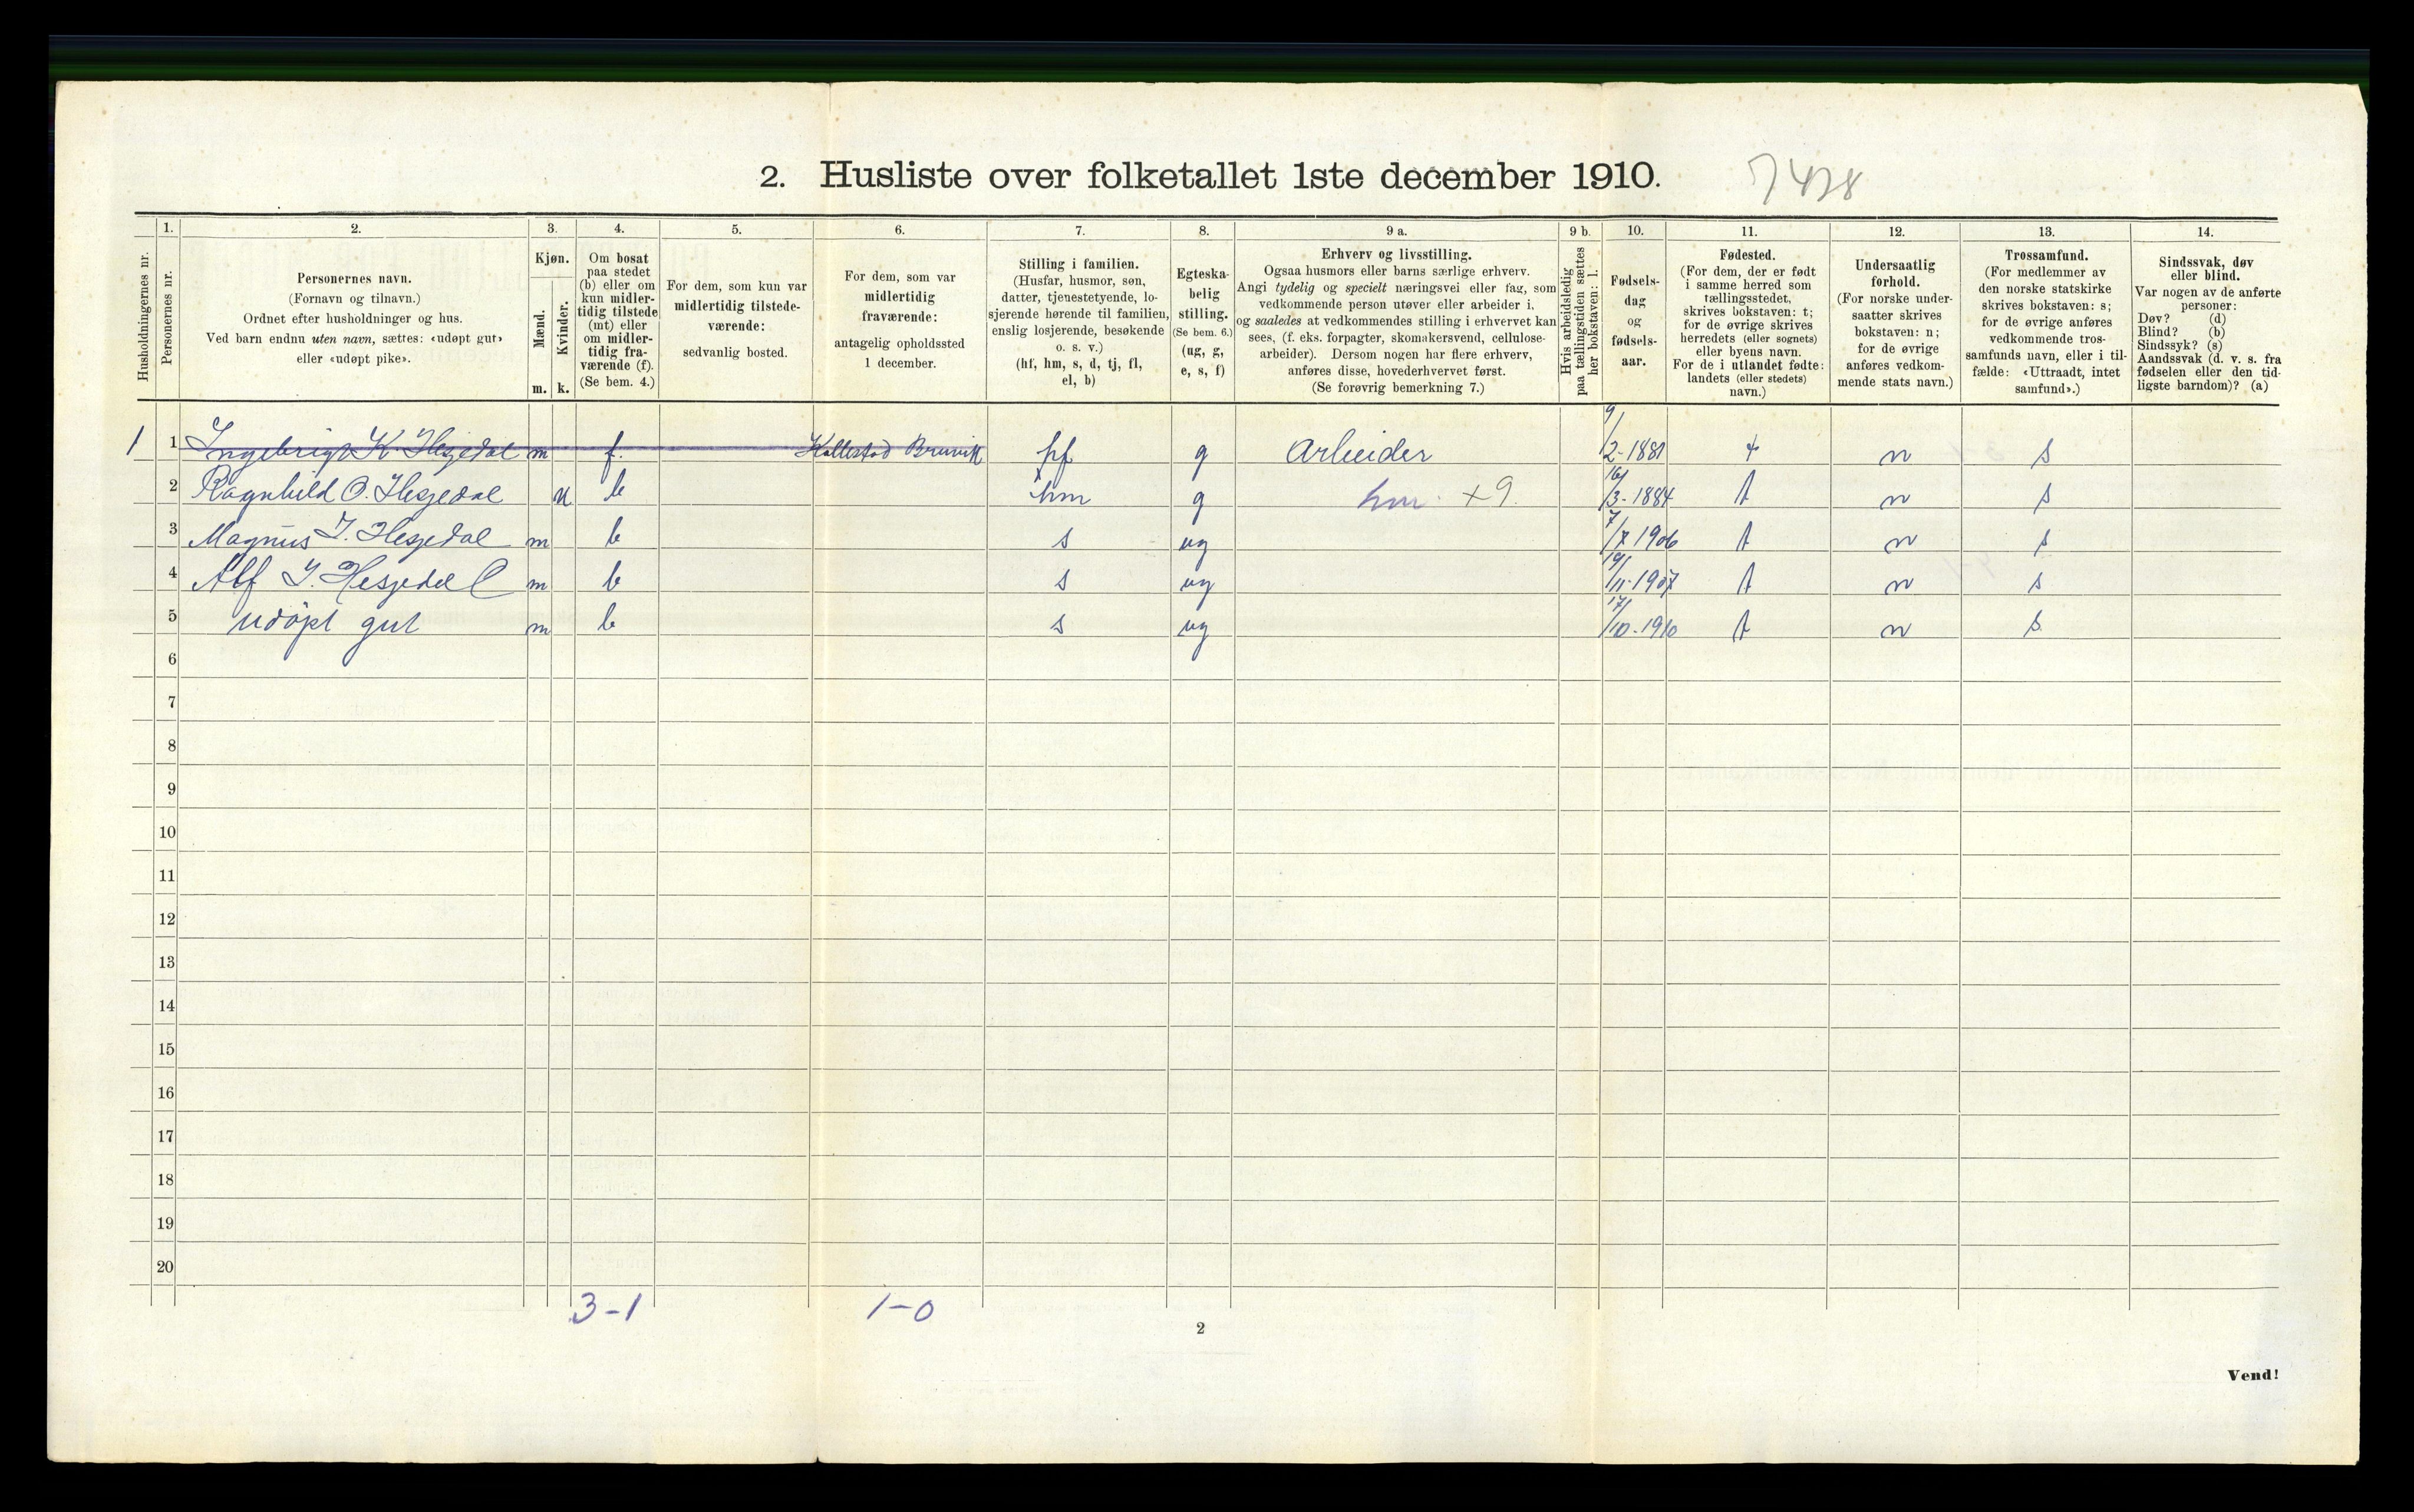 2. Husliste over folketallet 1ste december 1910. 7428
Husholdningernes nr.
1.
Personernes nr.
2.
Personernes navn.
(Fornavn og tilnavn.)
Ordnet efter husholdninger og hus.
Ved barn endnu uten navn, sættes: «udøpt gut»
eller «udøpt pike».
3.
Kjøn.
Mænd.
m.
Kvinder.
k.
4.
Om bosat
paa stedet
(b) eller om
kun midler-
tidig tilstede
(mt) eller
om midler-
tidig fra-
værende (f).
(Se bem. 4.)
5.
For dem, som kun var
midlertidig tilstede-
værende:
sedvanlig bosted.
6.
For dem, som var
midlertidig
fraværende:
antagelig opholdssted
1 december.
7.
Stilling i familien.
(Husfar, husmor, søn,
datter, tjenestetyende, lo-
sjerende hørende til familien,
enslig losjerende, besøkende
o. s. v.)
(hf, hm, s, d, tj, fl,
el, b)
8.
Egteska-
belig
stilling.
(Se bem. 6.)
(ug, g,
e, s, f)
9 a.
Erhverv og livsstilling.
Ogsaa husmors eller barns særlige erhverv.
Angi tydelig og specielt næringsvei eller fag, som
vedkommende person utøver eller arbeider i,
og saaledes at vedkommendes stilling i erhvervet kan
sees, (f. eks. forpagter, skomakersvend, cellulose-
arbeider). Dersom nogen har flere erhverv,
anføres disse, hovederhvervet først.
(Se forøvrig bemerkning 7.)
9 b.
Hvis arbeidsledig
paa tællingstiden sættes
her bokstaven: l.
10.
Fødsels-
dag
og
fødsels-
aar.
11.
Fødested.
(For dem, der er født
i samme herred som
tællingsstedet,
skrives bokstaven: t;
for de øvrige skrives
herredets (eller sognets)
eller byens navn.
For de i utlandet fødte:
landets (eller stedets)
navn.)
12.
Undersaatlig
forhold.
(For norske under-
saatter skrives
bokstaven: n;
for de øvrige
anføres vedkom-
mende stats navn.)
13.
Trossamfund.
(For medlemmer av
den norske statskirke
skrives bokstaven: s;
for de øvrige anføres
vedkommende tros-
samfunds navn, eller i til-
fælde: «Uttraadt, intet
samfund».)
14.
Sindssvak, døv
eller blind.
Var nogen av de anførte
personer:
Døv? (d)
Blind? (b)
Sindssyk? (s)
Aandssvak (d. v. s. fra
fødselen eller den tid-
ligste barndom)? (a)
1 1 Ingebrigt K. Hesjedal m f. Kallestad Bruvik hf g Arbeider 9/2-1881 t n s
2 Ragnhild O. Hesjedal k b hm g hm. +9. 16/3-1884 t n s
3 Magnus I. Hesjedal m b s ug 7/7 1906 t n s
4 Alf I. Hesjedal m b s ug 19/11-1907 t n s
5 udøpt gut m b s ug 17/10-1910 t n s
6
7
8
9
10
11
12
13
14
15
16
17
18
19
20
3-1 1-0
2
Vend!